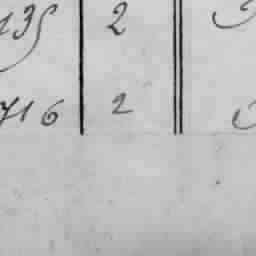 135 2
716 2